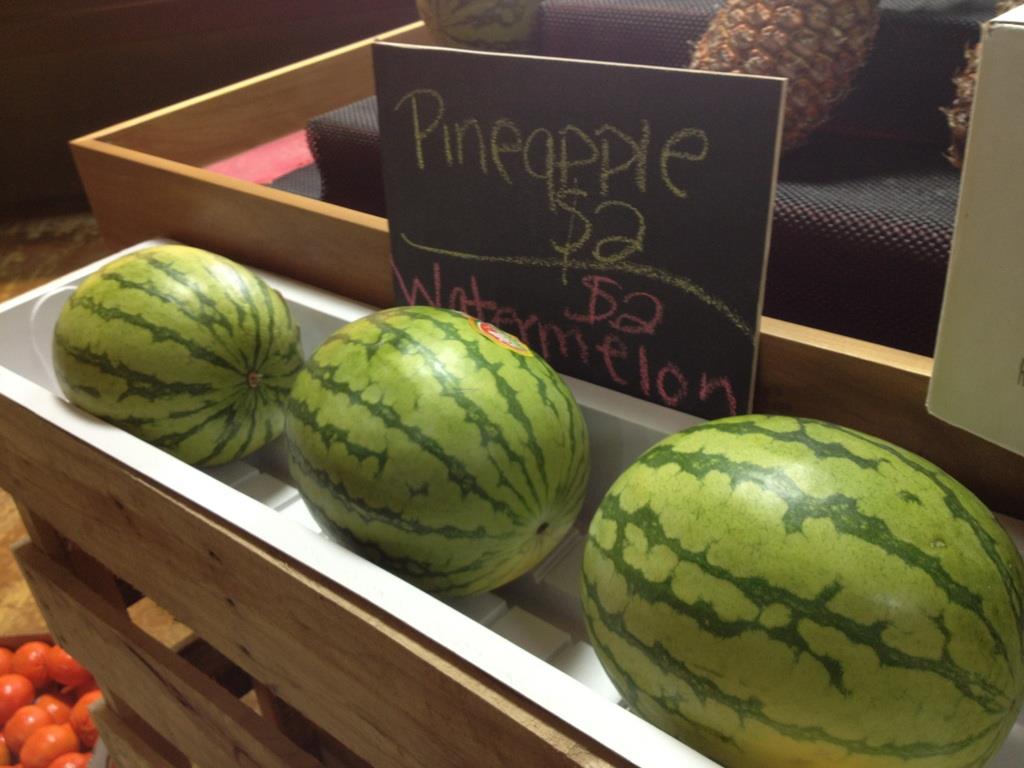 Pineapple
$2
$2
Watermelon